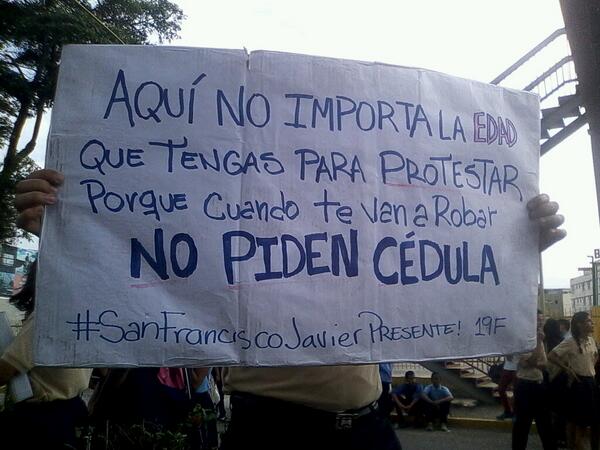 AQUÍ NO IMPORTA LA EDAD
QUE TENGAS PARA PROTESTAR
Porque Cuando te Van a Robar
NO PIDEN CÉDULA
#SanFranciscoJavierPRESENTE! 19F